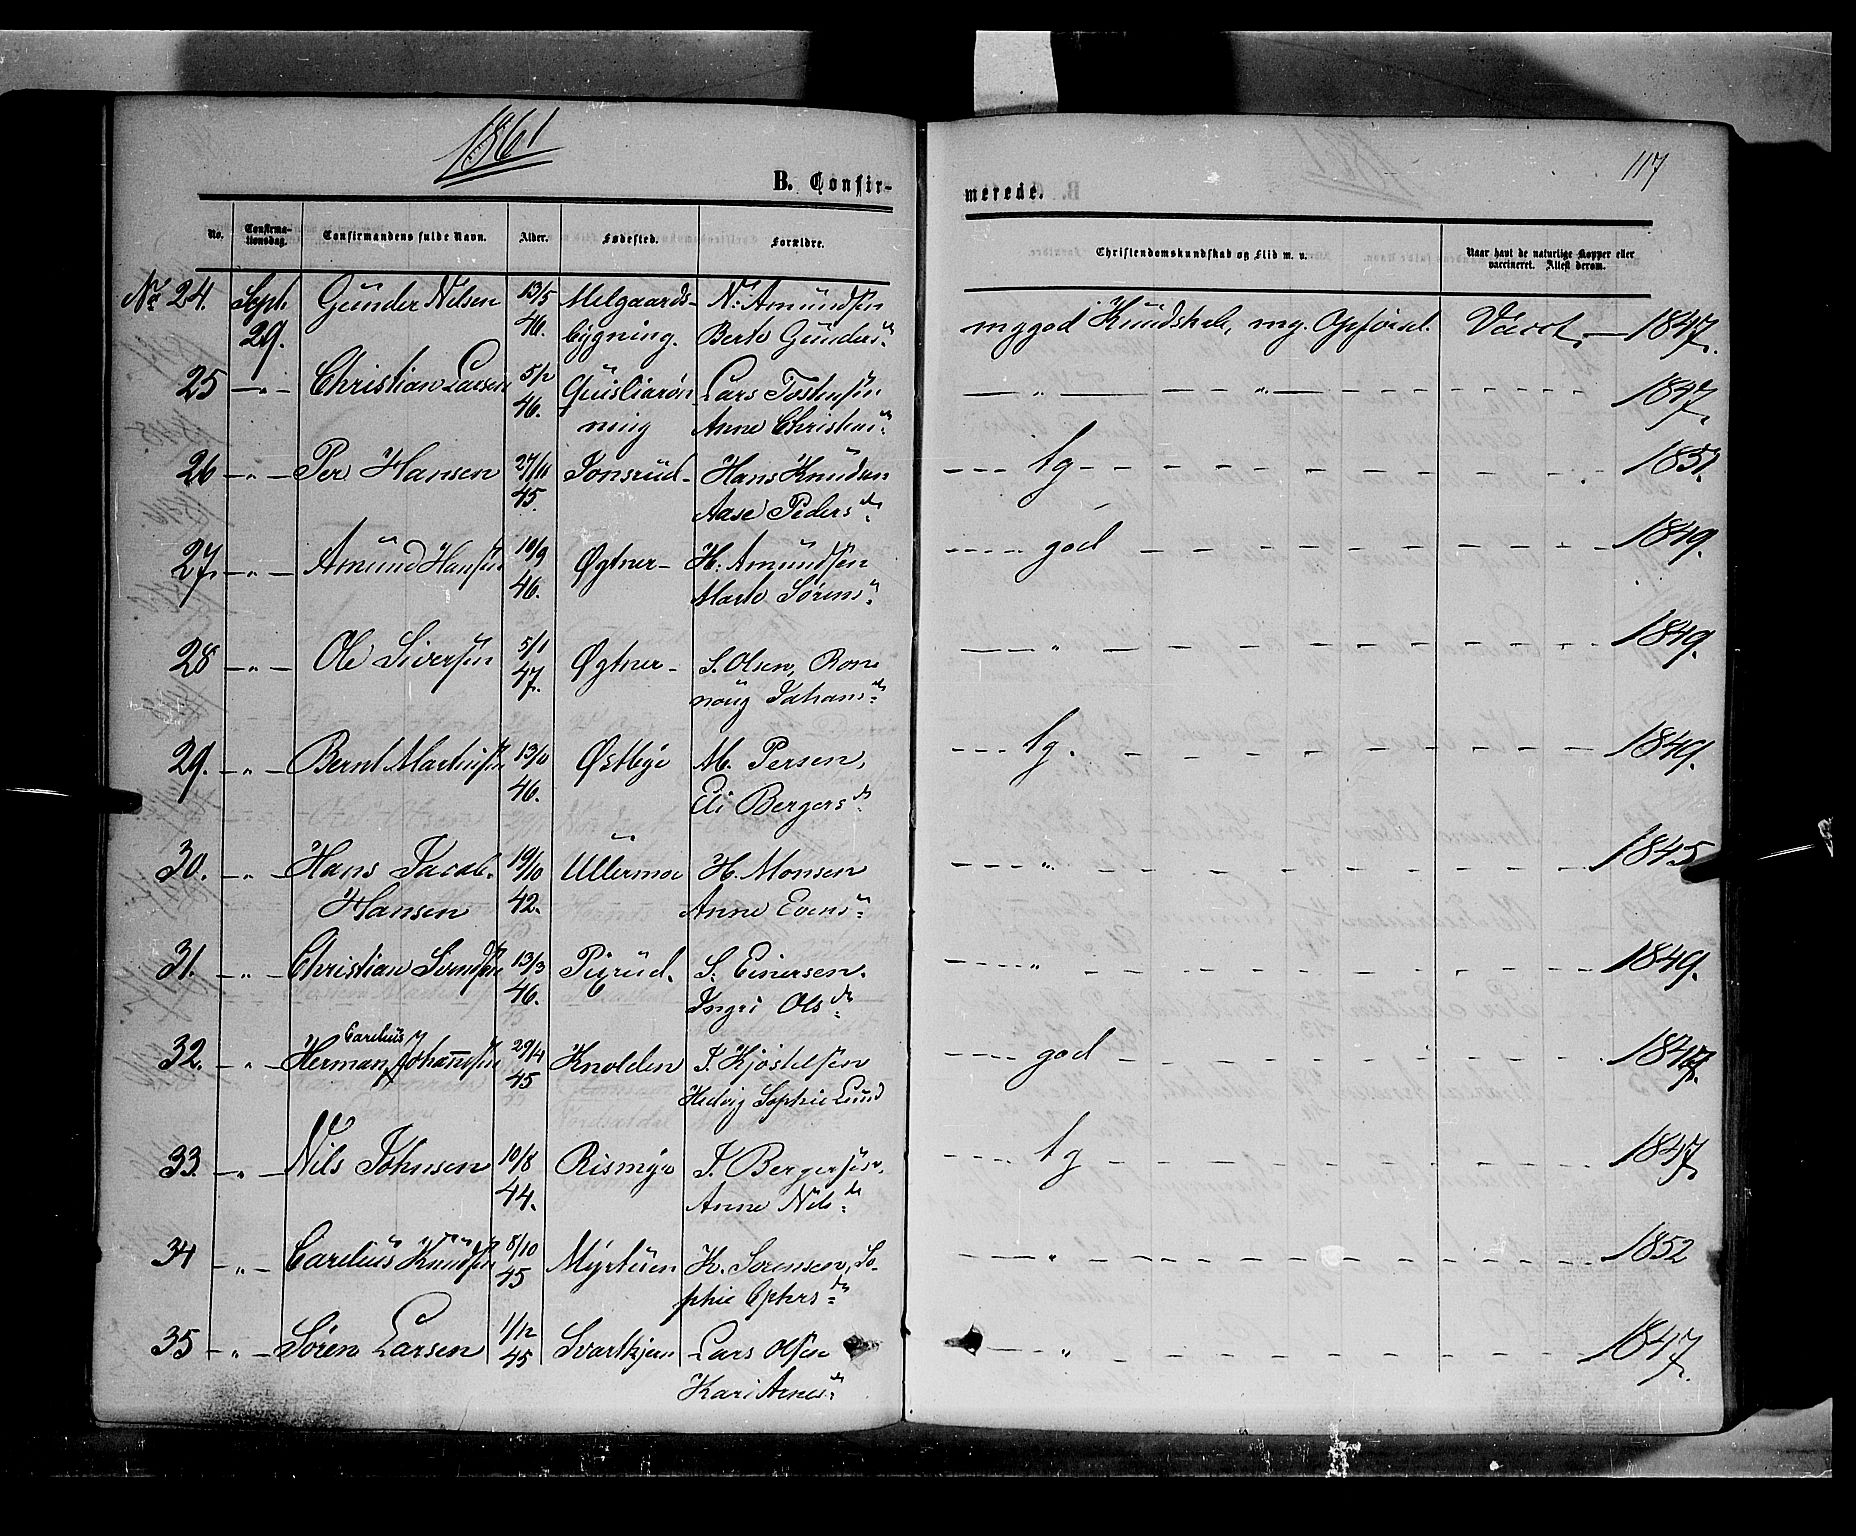 1861
117
B. Confir-
merede.
No.
Confirma-
tionsdag.
Confirmandens fulde Navn.
Alder.
Fødested.
Forældre.
Christendomskundskab og Flid m. v.
Naar havt de naturlige Kopper eller
vaccineret. Attest derom.
No 24. Septr 29. Gunder Nilsen 13/5 46. Melgaards-
bygning. N. Amundsen
Berte Gunders.
mg god Kundskab, mg. Opførsel. Vacct. — 1847.
25 — " — Christian Larsen 5/2 46. Lars Tostensen
ning Anne Christens.
— " — " — 1847.
26 - " - Per Hansen 27/11 45. Tonsrud - Hans Knudsen
Aase Peders dr.
tg 1851.
27. - " - Amund Hansen 10/9 46. Øgtner - H. Amundsen
Marte Sørens.
god 1849.
28 - " - Ole Siversen 5/1 47. Øgtner - S. Olsen, Ron-
noug Johans dr.
" 1849.
29. - " - Bernt Martinsen 13/10 46. Østbye M. Persen,
Eli Bergers dr.
tg. 1849.
30. - " - Hans Jacob 19/10 42. Ullermoe H. Monsen
Hansen Anne Evens.
" 1845
31. - " - Christian Svendsen 13/3 46. Pixrud. S. Einersen.
Ingri Ols dr.
" 1849.
Carelius
32. - " - Herman Johannsen 29/4 45 Knolden J. Kjøstelsen
Hedvig Sophie Lund
god 1847.
33. - " - Nils Johnsen 10/8 44. Rismyr J. Bergersen,
Anne Nils dr.
tg 1847.
34 - " - Carelius Knudsen 8/10 45 Myrtuen K. Sørensen, So-
phie Ophers dr.
" 1852
35 - " - Søren Larsen 1/12 45 Svartkjen Lars Olsen
Kari Arnes dr.
" 1847.